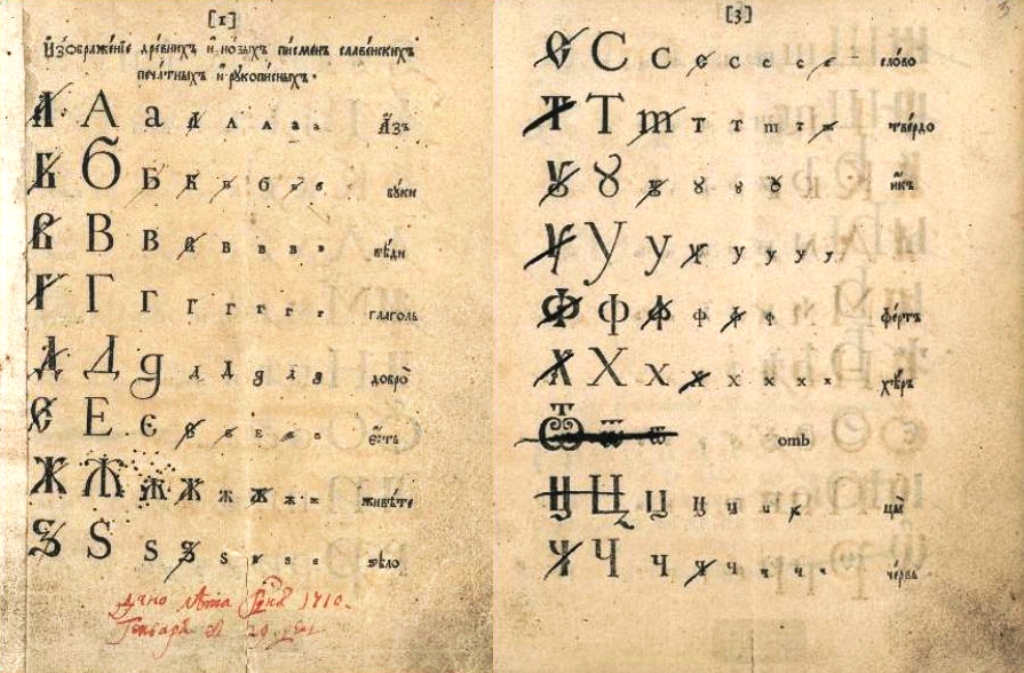 [1]
Изѡбраже́нїе дре́внихъ и но́выхъ писме́нъ славе́нскихъ
печа́тныхъ и рꙋкопи́сныхъ.
А А а А А А а а А́зъ
Б Б Б Б Б б Б Б бꙋ́ки
В В В В В В В В вѣ́ди
Г Г Г Г Г Г Г Г глаголь
Д Д д Д Д д Д д добро̀
Є Е є є е е е е є́сть
Ж Ж Ж Ж Ж Ж ж ж живѣ́те
Ѕ Ѕ ѕ ѕ ѕ ѕ ѕ ѕ ѕѣло
Дано лѣта Гдня 1710.
Генваря в 29 день
[3]
С С с с с с с с сло́во
Т Т т т т т т т тве́рдо
Ꙋ Ꙋ ꙋ ꙋ ꙋ ꙋ и҆́къ
У У у у у у у у
Ф Ф ф ф ф ф фе́ртъ
Х Х х х х х х х хѣ́ръ
Ѿ ѿ ѿ отъ
Ц Ц ц ц ц ц ц цы̀
Ч Ч ч ч ч ч ч ч че́рвь